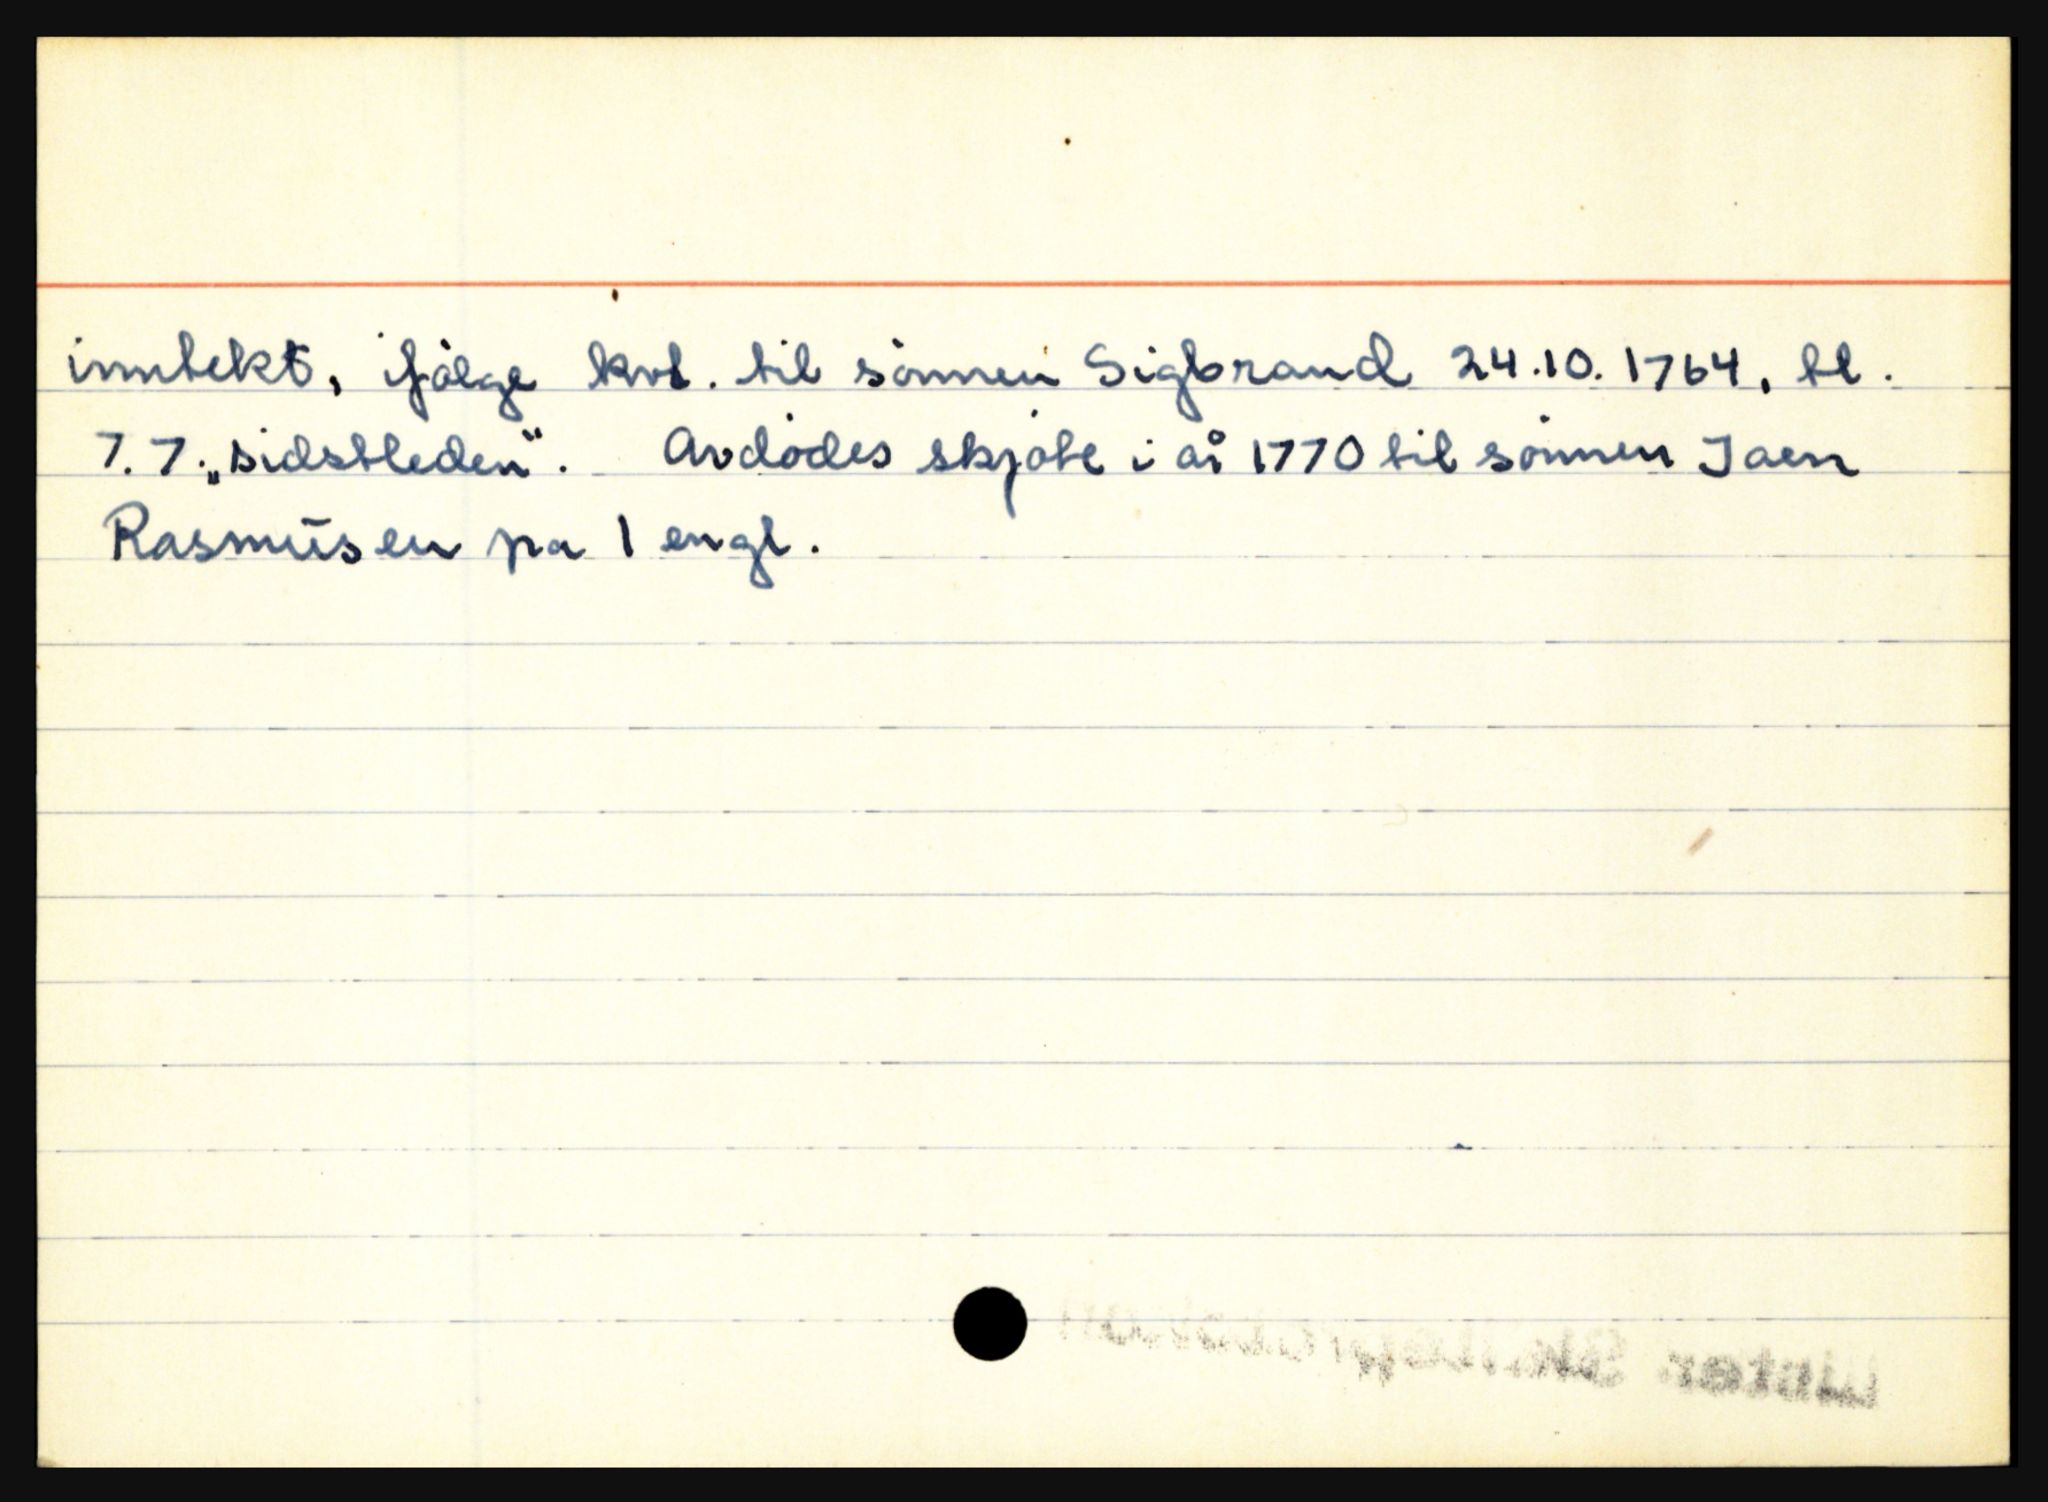 inntekt, ifølge kvt. til sønnen Sigbrand 24.10.1764, tl.
7.7. „sidstleden". Avdødes skjøte i år 1770 til sønnen Jaen
Rasmusen på 1 engl.
Lister